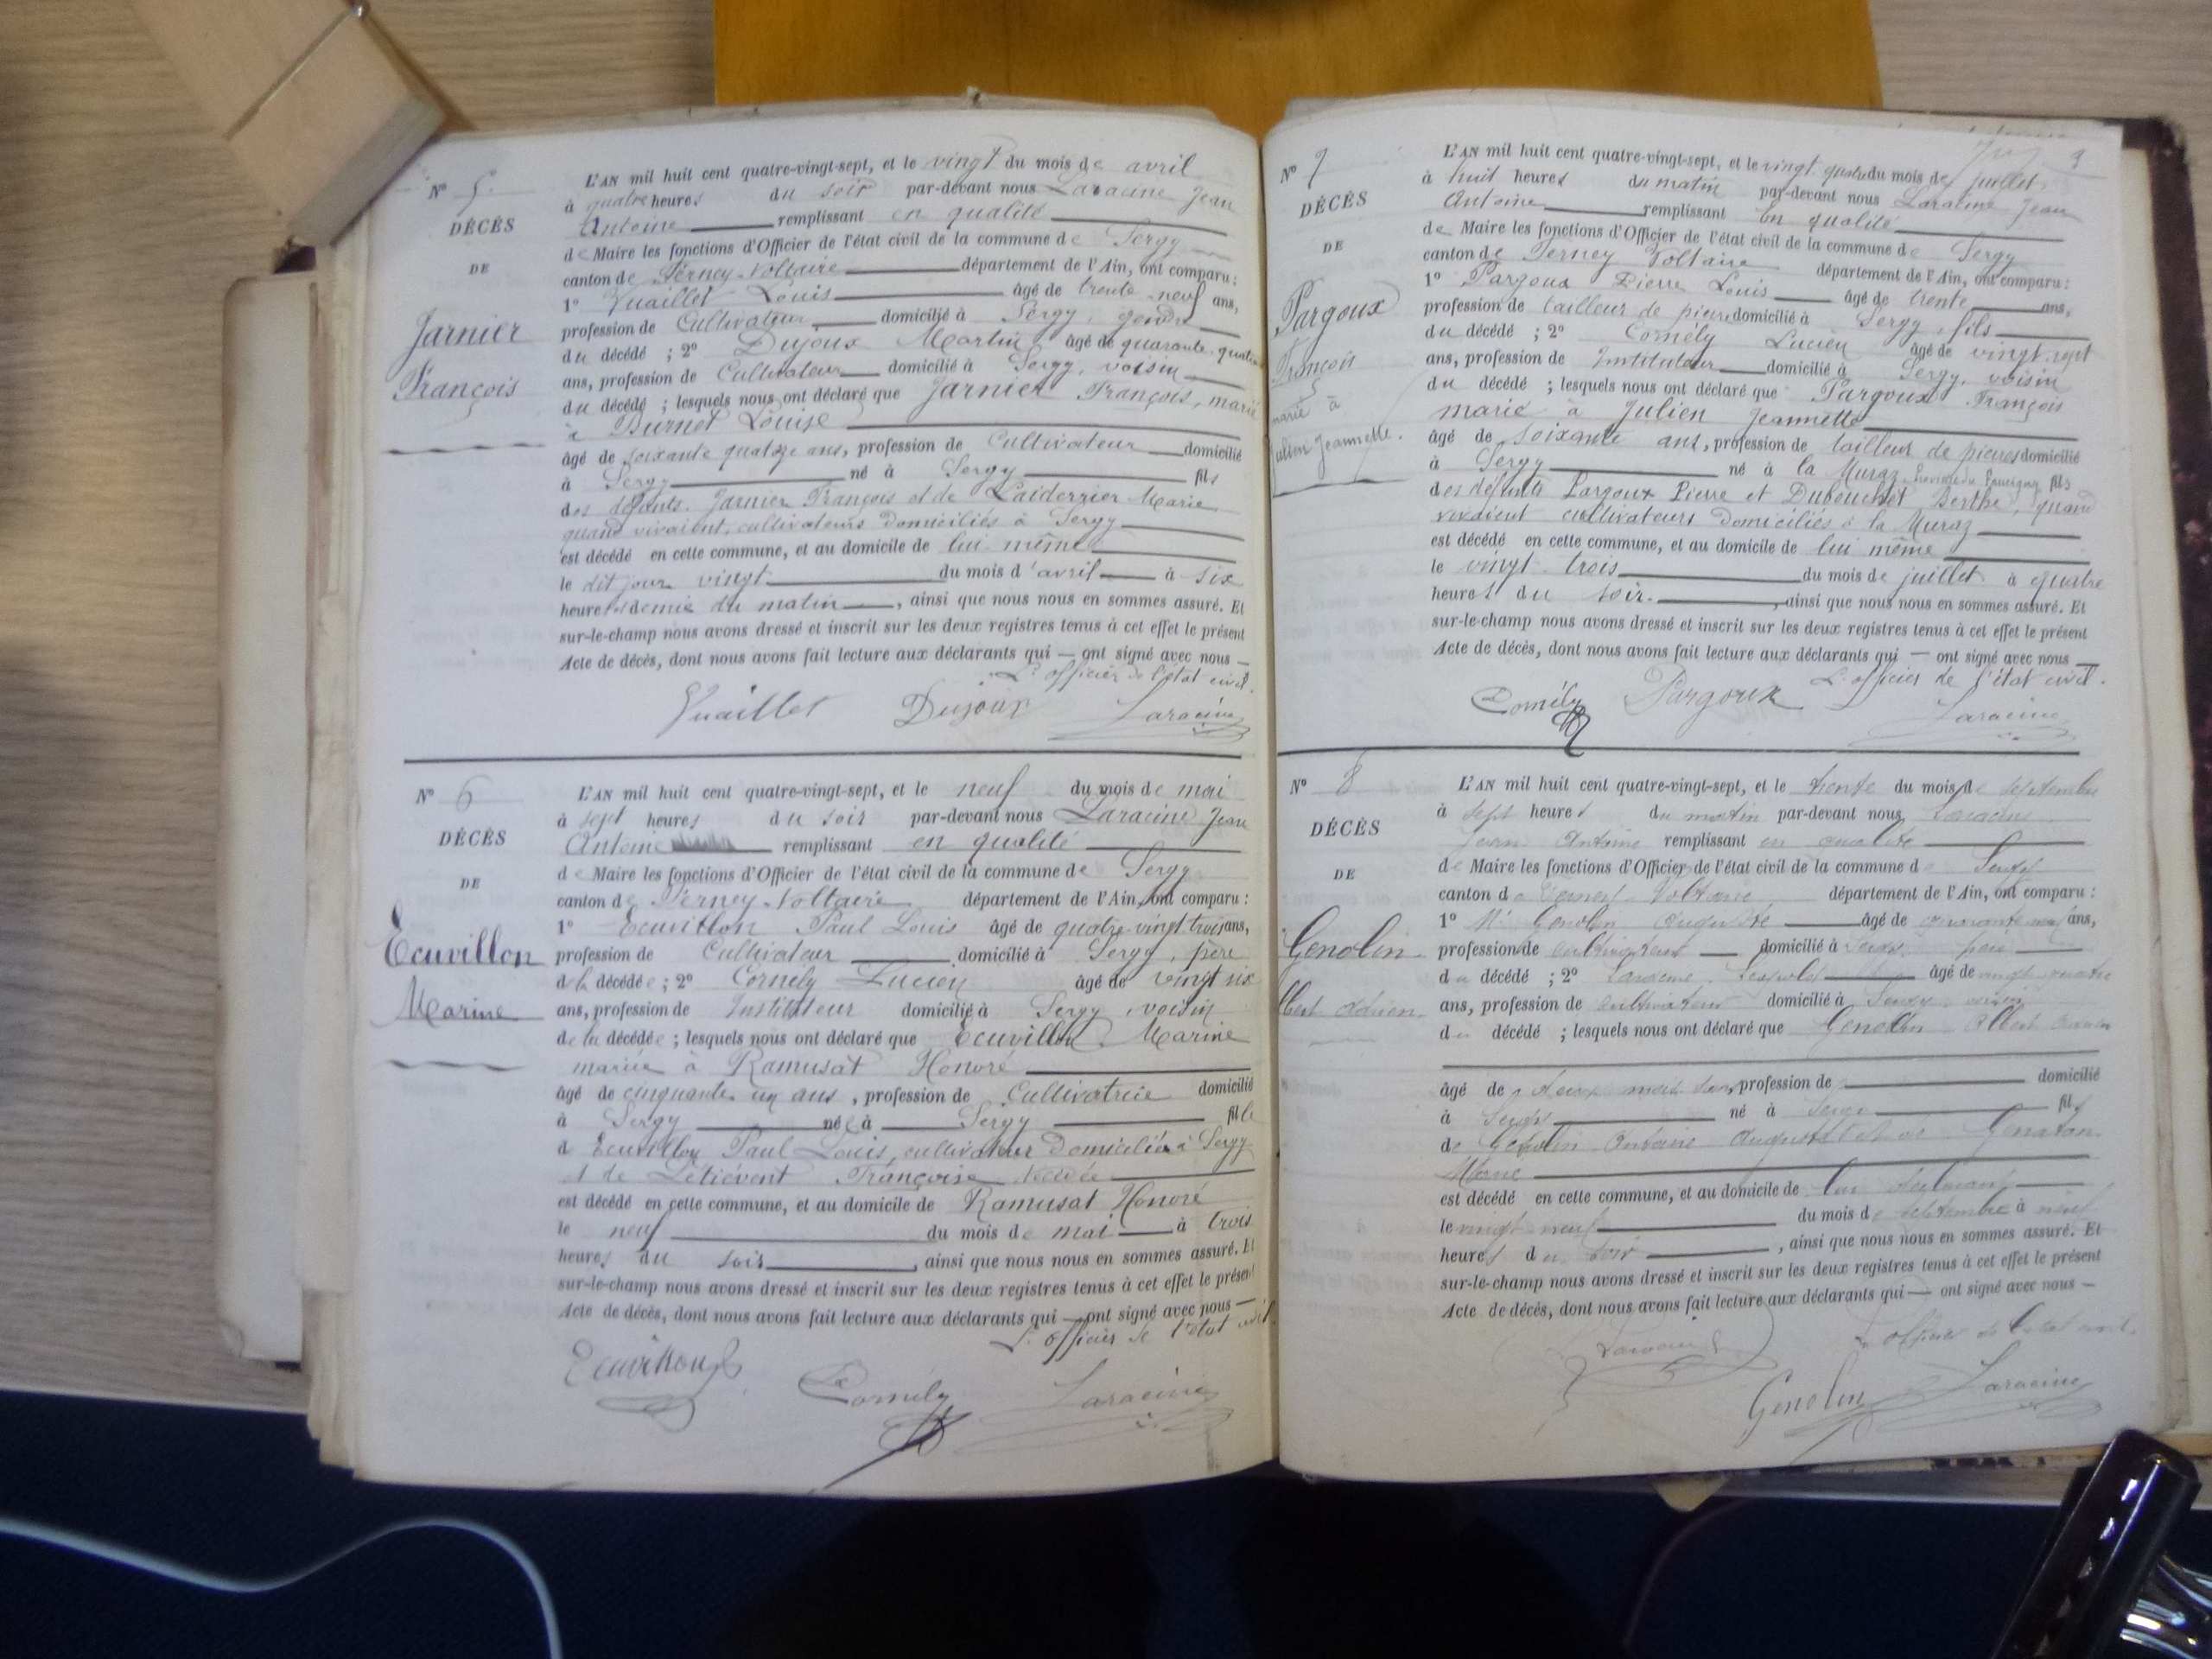 N° 5.
DÉCÈS
DE
Jarnier
François
L'AN mil huit cent quatre-vingt-sept, et le vingt du mois de avril
à quatre heures du soir par-devant nous Laracine Jean
Antoine remplissant en qualité
de Maire les fonctions d'Officier de l'état civil de la commune de Sergy
canton de Ferney-Voltaire département de l'Ain, ont comparu :
1° Vuaillet Louis âgé de trente-neuf ans,
profession de Cultivateur domicilié à Sergy, gendre
du décédé ; 2° Dujoux Martin âgé de quarante-quatre
ans, profession de Cultivateur domicilié à Sergy, voisin
du décédé ; lesquels nous ont déclaré que Jarnier François, marié
à Burnet Louise
âgé de soixante quatorze ans, profession de Cultivateur domicilié
à Sergy né à Sergy fils
des défunts Jarnier François et de Laiderrier Marie
quand vivaient, cultivateurs domiciliés à Sergy
est décédé en cette commune, et au domicile de lui-même
le dit jour vingt du mois d'avril à six
heures demie du matin, ainsi que nous nous en sommes assuré. Et
sur-le-champ nous avons dressé et inscrit sur les deux registres tenus à cet effet le présent
Acte de décès, dont nous avons fait lecture aux déclarants qui — ont signé avec nous —
L'officier de l'état civil.
Vuaillet Dujoux Laracine
N° 6
DÉCÈS
DE
Ecuvillon
Marine
L'AN mil huit cent quatre-vingt-sept, et le neuf du mois de mai
à sept heures du soir par-devant nous Laracine Jean
Antoine remplissant en qualité
de Maire les fonctions d'Officier de l'état civil de la commune de Sergy
canton de Ferney-Voltaire département de l'Ain, ont comparu :
1° Ecuvillon Paul Louis âgé de quatre-vingt-trois ans,
profession de Cultivateur domicilié à Sergy, père
de la décédée ; 2° Cornély Lucien âgé de vingt six
ans, profession de Instituteur domicilié à Sergy, voisin
de la décédée ; lesquels nous ont déclaré que Ecuvillon Marine
mariée à Ramusat Honoré
âgé de cinquante un ans, profession de Cultivatrice domicilié
à Sergy née à Sergy fille
d Ecuvillon Paul Louis, cultivateur domicilié à Sergy
et de Létiévent Françoise
est décédé en cette commune, et au domicile de Ramusat Honoré
le neuf du mois de mai à trois
heures du soir, ainsi que nous nous en sommes assuré. Et
sur-le-champ nous avons dressé et inscrit sur les deux registres tenus à cet effet le présent
Acte de décès, dont nous avons fait lecture aux déclarants qui — ont signé avec nous —
L'officier de l'état civil.
Ecuvillon Cornély Laracine
3
N° 7
DÉCÈS
DE
Pargoux
François
marié à
Julien Jeannette.
L'AN mil huit cent quatre-vingt-sept, et le vingt quatre du mois de juillet
à huit heures du matin par-devant nous Laracine Jean
Antoine remplissant en qualité
de Maire les fonctions d'Officier de l'état civil de la commune de Sergy
canton de Ferney Voltaire département de l'Ain, ont comparu :
1° Pargoux Pierre Louis âgé de trente ans,
profession de tailleur de pierre domicilié à Sergy, fils
du décédé ; 2° Cornély Lucien âgé de vingt-sept
ans, profession de Instituteur domicilié à Sergy, voisin
du décédé ; lesquels nous ont déclaré que Pargoux François
marié à Julien Jeannette
âgé de soixante ans, profession de tailleur de pierres domicilié
à Sergy né à la Muraz fils
des défunts Pargoux Pierre et Dubouchet Berthe, quand
vivaient cultivateurs domiciliés à la Muraz
est décédé en cette commune, et au domicile de lui même
le vingt-trois du mois de juillet à quatre
heures du soir, ainsi que nous nous en sommes assuré. Et
sur-le-champ nous avons dressé et inscrit sur les deux registres tenus à cet effet le présent
Acte de décès, dont nous avons fait lecture aux déclarants qui — ont signé avec nous —
L'officier de l'état civil.
Cornély Pargoux Laracine
N° 8
DÉCÈS
DE
Genolin
Albert Adrien
L'AN mil huit cent quatre-vingt-sept, et le trente du mois de septembre
à sept heures du matin par-devant nous Laracine
Jean Antoine remplissant en qualité
de Maire les fonctions d'Officier de l'état civil de la commune de Sergy
canton de Ferney-Voltaire département de l'Ain, ont comparu :
1° Mr Genolin Auguste âgé de ans,
profession de cultivateur domicilié à Sergy père
du décédé ; 2° Laracine âgé de vingt-quatre
ans, profession de cultivateur domicilié à Sergy voisin
du décédé ; lesquels nous ont déclaré que Genolin Albert Adrien
âgé de deux mois profession de domicilié
à Sergy né à Sergy fils
de Genolin Antoine Auguste et de
Marie
est décédé en cette commune, et au domicile de
le vingt neuf du mois de septembre à neuf
heures du soir, ainsi que nous nous en sommes assuré. Et
sur-le-champ nous avons dressé et inscrit sur les deux registres tenus à cet effet le présent
Acte de décès, dont nous avons fait lecture aux déclarants qui — ont signé avec nous —
L'officier de l'état civil.
Laracine Genolin Laracine